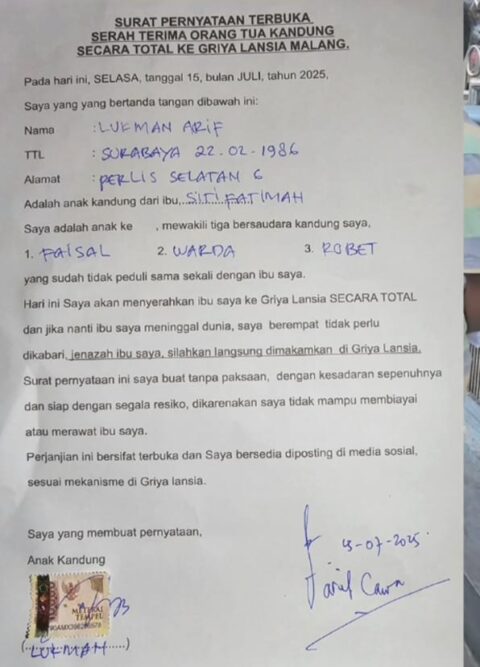 SURAT PERNYATAAN TERBUKA
SERAH TERIMA ORANG TUA KANDUNG
SECARA TOTAL KE GRIYA LANSIA MALANG.
Pada hari ini, SELASA, tanggal 15, bulan JULI, tahun 2025,
Saya yang yang bertanda tangan dibawah ini:
Nama : LUKMAN ARIF
TTL : SURABAYA 22-02-1986
Alamat : PERLIS SELATAN 6
Adalah anak kandung dari ibu,..SITI FATIMAH
Saya adalah anak ke , mewakili tiga bersaudara kandung saya,
1. FAISAL 2. WARDA 3. ROBET
yang sudah tidak peduli sama sekali dengan ibu saya.
Hari ini Saya akan menyerahkan ibu saya ke Griya Lansia SECARA TOTAL
dan jika nanti ibu saya meninggal dunia, saya berempat tidak perlu
dikabari, jenazah ibu saya, silahkan langsung dimakamkan di Griya Lansia.
Surat pernyataan ini saya buat tanpa paksaan, dengan kesadaran sepenuhnya
dan siap dengan segala resiko, dikarenakan saya tidak mampu membiayai
atau merawat ibu saya.
Perjanjian ini bersifat terbuka dan Saya bersedia diposting di media sosial,
sesuai mekanisme di Griya lansia.
Saya yang membuat pernyataan,
Anak Kandung
15-07-2025
METERAI
TEMPEL
(LUKMAN)